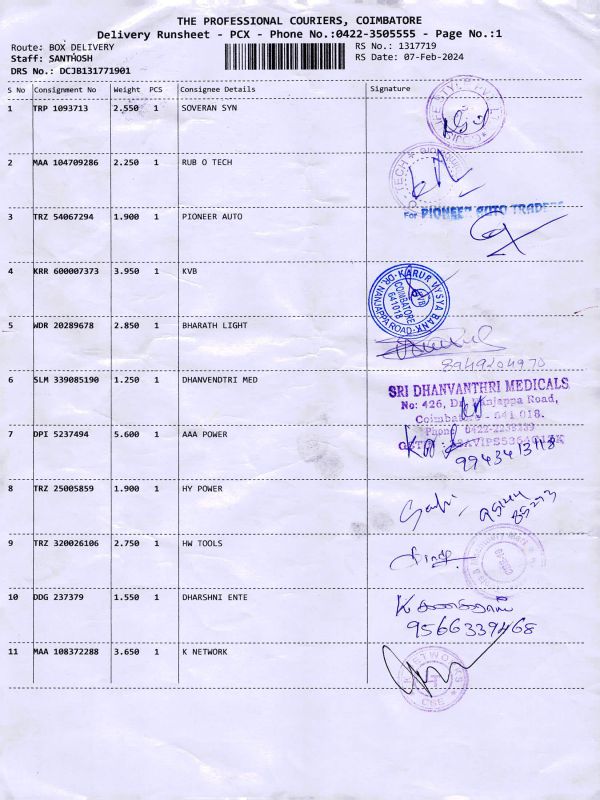 THE PROFESSIONAL COURIERS, COIMBATORE
Delivery Runsheet - PCX - Phone No.:0422-3505555 - Page No.:1
Route: BOX DELIVERY
RS No.: 1317719
Staff: SANTHOSH
RS Date: 07-Feb-2024
DRS No.: DCJB131771901
S No Consignment No Weight PCS Consignee Details Signature
1 TRP 1093713 2.550 1 SOVERAN SYN
2 MAA 104709286 2.250 1 RUB O TECH
3 TRZ 54067294 1.900 1 PIONEER AUTO
For PIONEER AUTO TRADERS
4 KRR 600007373 3.950 1 KVB
KARUR VYSYA BANK
DR. NANJAPPA ROAD
KVB
COIMBATORE
641018
5 WDR 20289678 2.850 1 BHARATH LIGHT
8949204970
6 SLM 339085190 1.250 1 DHANVENDTRI MED
SRI DHANVANTHRI MEDICALS
No: 426, Dr. Nanjappa Road,
Coimbatore - 641 018.
Phone: 0422-2238239
7 DPI 5237494 5.600 1 AAA POWER
8 TRZ 25005859 1.900 1 HY POWER
9 TRZ 320026106 2.750 1 HW TOOLS
10 DDG 237379 1.550 1 DHARSHNI ENTE
9566339468
11 MAA 108372288 3.650 1 K NETWORK
K NETWORKS
CBE